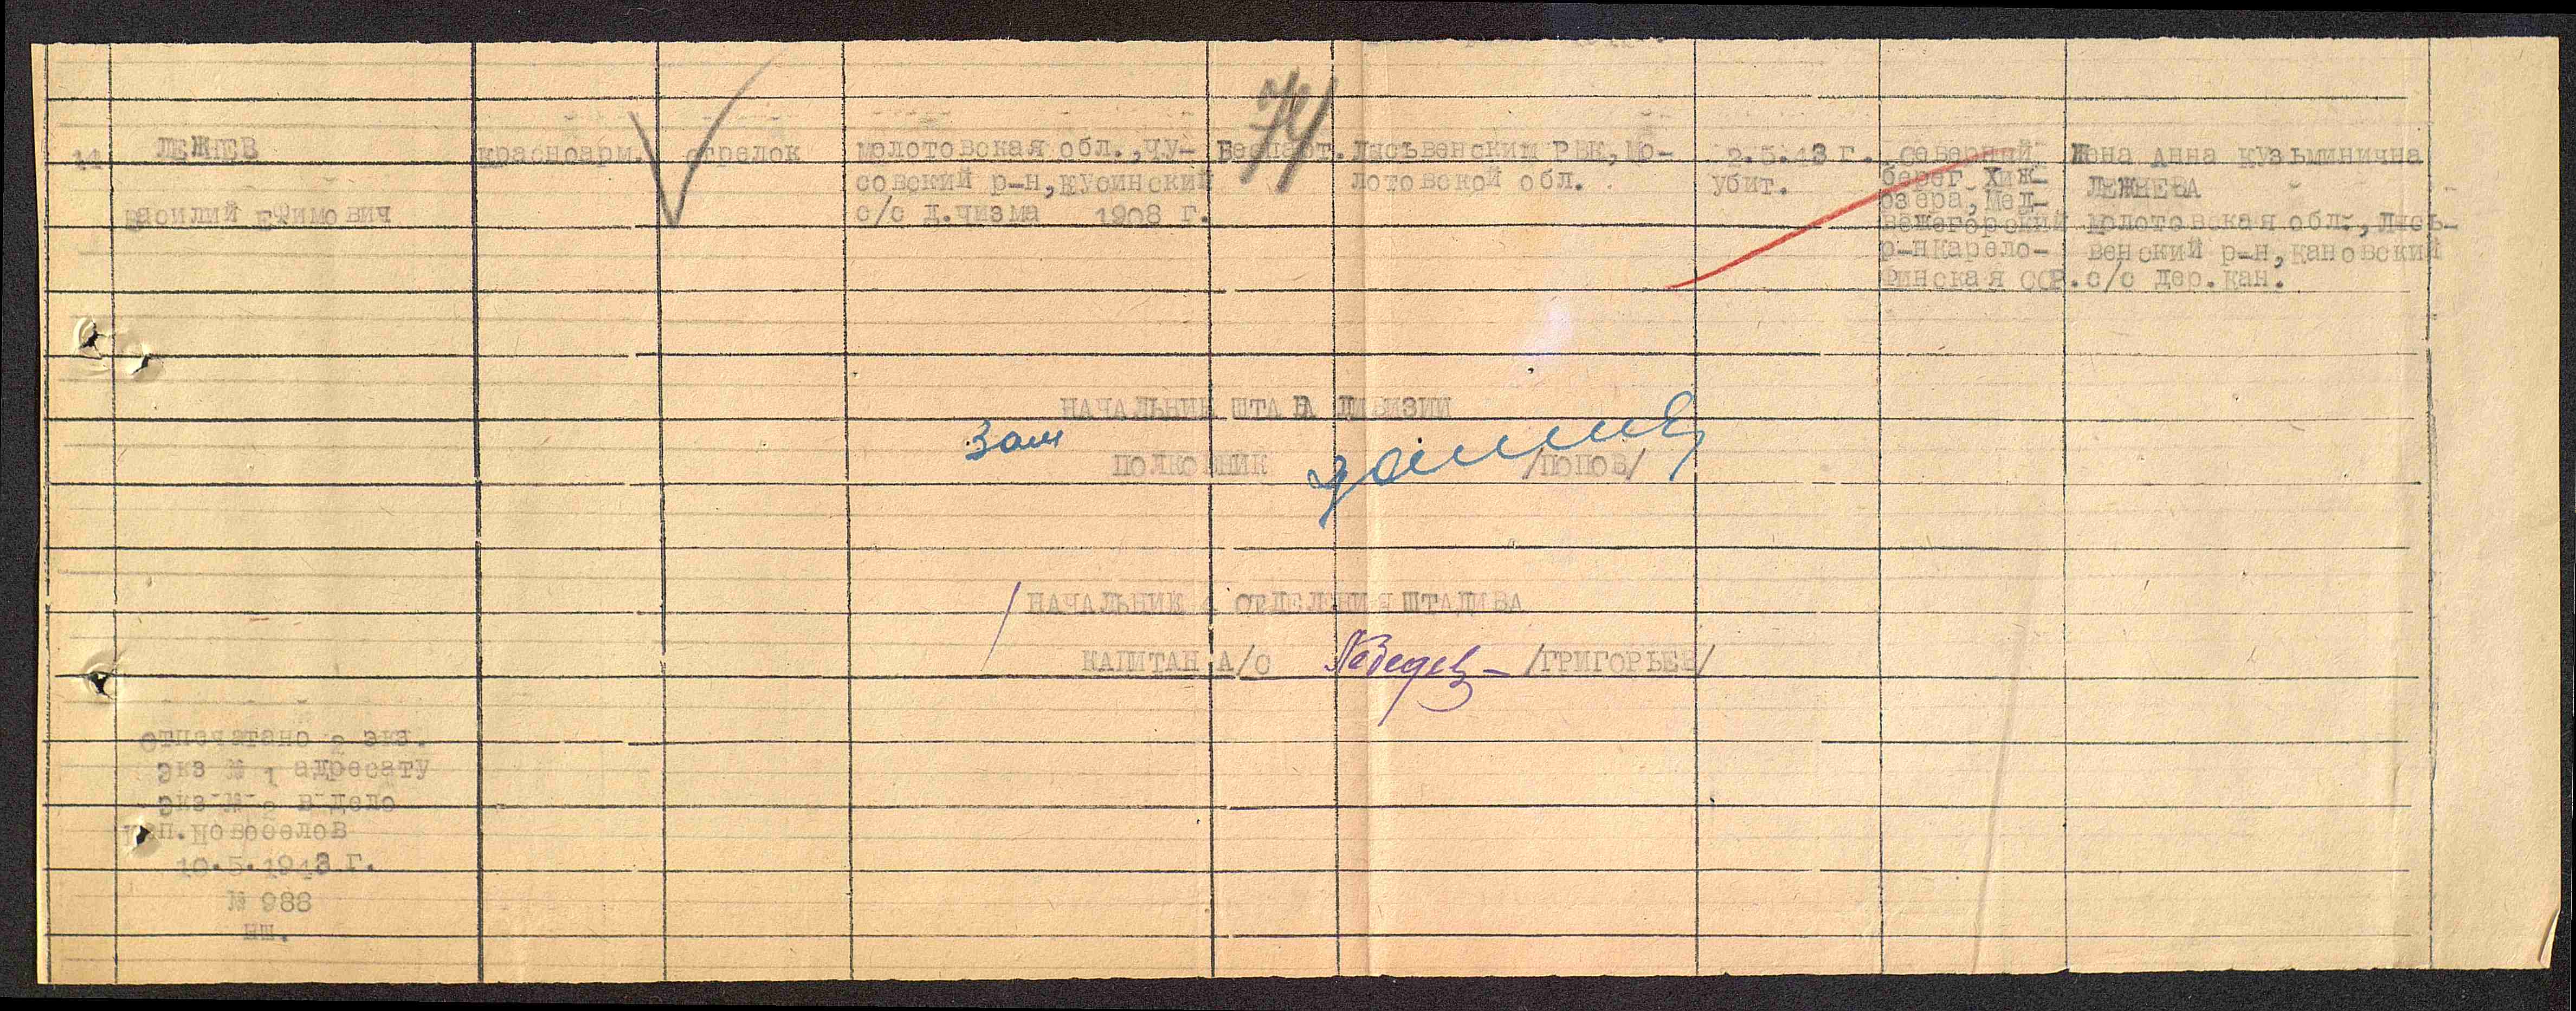 14
ЛЕЖНЕВ
Василий Ефимович
красноарм.
стрелок
Молотовская обл., Чу-
совский р-н, Кусинский
с/с д.Чизма 1908 г.
Беспарт.
74
Лысьвенским РВК, Мо-
лотовской обл.
2.5.43 г.
убит.
Северный
берег Хиж-
озера, Мед-
вежегорский
р-н Карело-
Финская ССР.
Жена Анна Кузьминична
ЛЕЖНЕВА
Молотовская обл., Лысь-
венский р-н, Кановский
с/с дер. Кан.
НАЧАЛЬНИК ШТАБА ДИВИЗИИ
Зам
ПОЛКОВНИК /ПОПОВ/
НАЧАЛЬНИК 4 ОТДЕЛЕНИЯ ШТАДИВА
КАПИТАН А/С Лебедев /ГРИГОРЬЕВ/
Отпечатано 2 экз.
экз № 1 адресату
экз № 2 в дело
Исп. Новоселов
10.5.1943 г.
№ 988
нш.